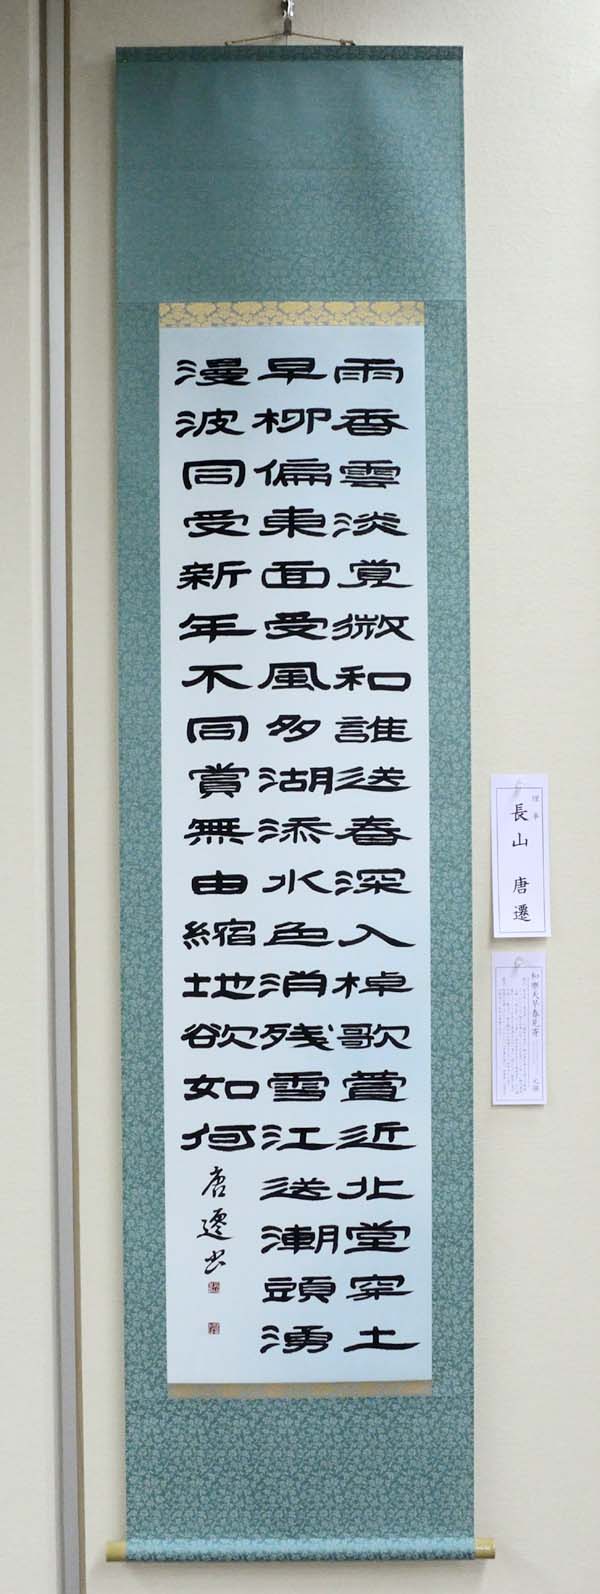 雨香雲淡覚微和誰送春深入棹歌萱近北堂穿土
早柳偏東面受風多湖添水色消残雪江送潮頭湧
漫波同受新年不同賞無由縮地欲如何
唐遷書
理事
長山 唐遷
和樂天早春見寄 元稹